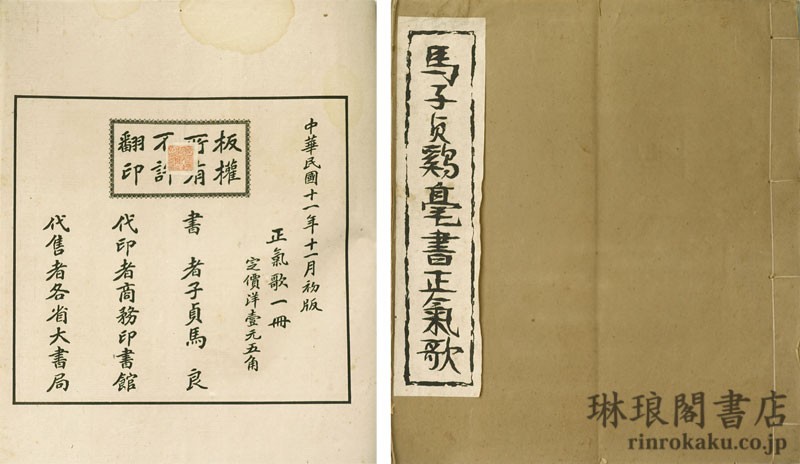 中華民國十一年十一月初版
正氣歌一冊
定價洋壹元五角
板權
所有
不許
翻印
書者子貞馬良
代印者商務印書館
代售者各省大書局
馬子貞鷄毫書正氣歌
琳琅閣書店
rinrokaku.co.jp